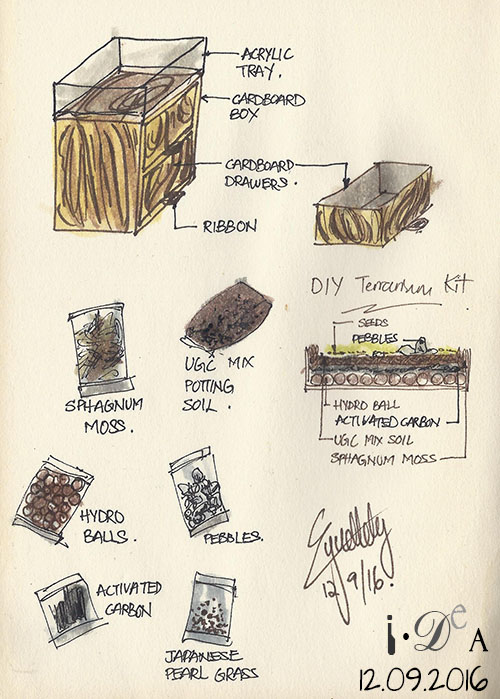 ACRYLIC
TRAY.
CARDBOARD
BOX
CARDBOARD
DRAWERS.
RIBBON
DIY Terrarium Kit
SEEDS
PEBBLES
HYDRO BALL
ACTIVATED CARBON
UGC MIX SOIL
SPHAGNUM MOSS
SPHAGNUM
MOSS.
UGC MIX
POTTING
SOIL.
HYDRO
BALLS.
PEBBLES.
ACTIVATED
CARBON
JAPANESE
PEARL GRASS
12/9/16.
i.DeA
12.09.2016